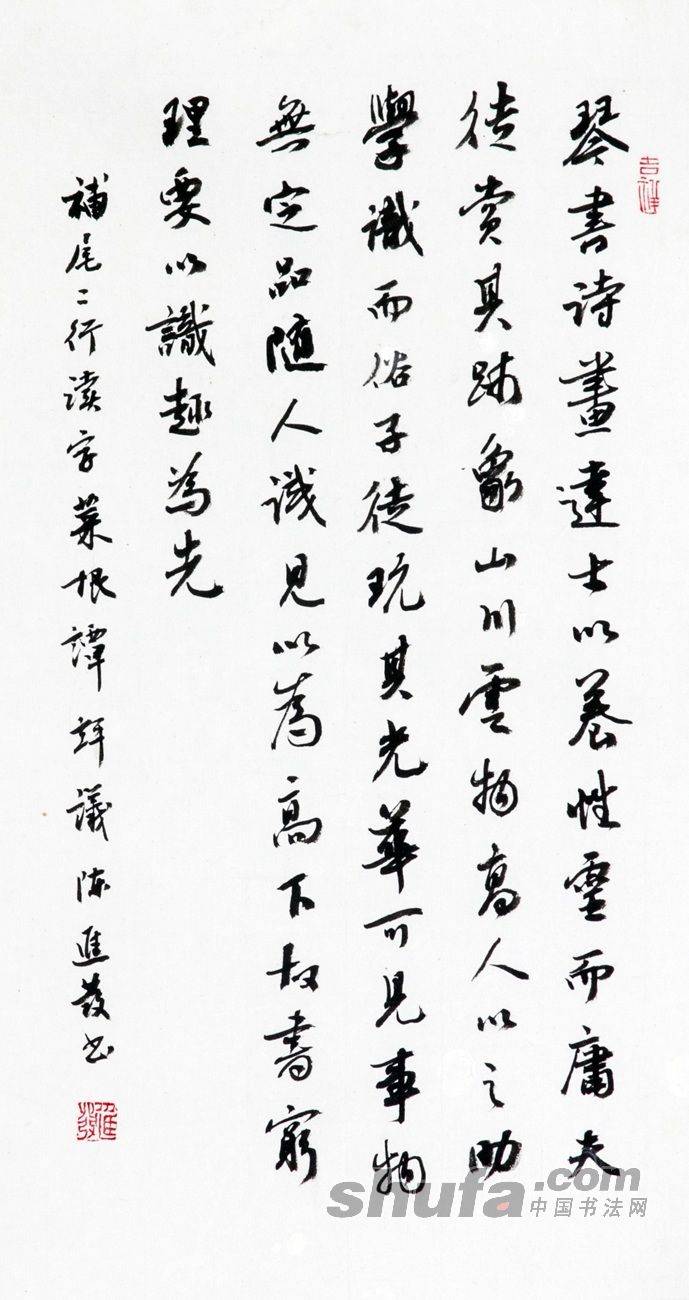 琴書诗畫達士以養性靈而庸夫
徒赏其跡象山川雲物高人以之助
學識而俗子徒玩其光華可見事物
無定品随人識見以為高下故書窮
理要以識趣為先
補尾二行读字菜根譚評議陈進發书
吉祥
進發
shufa.com
中国书法网